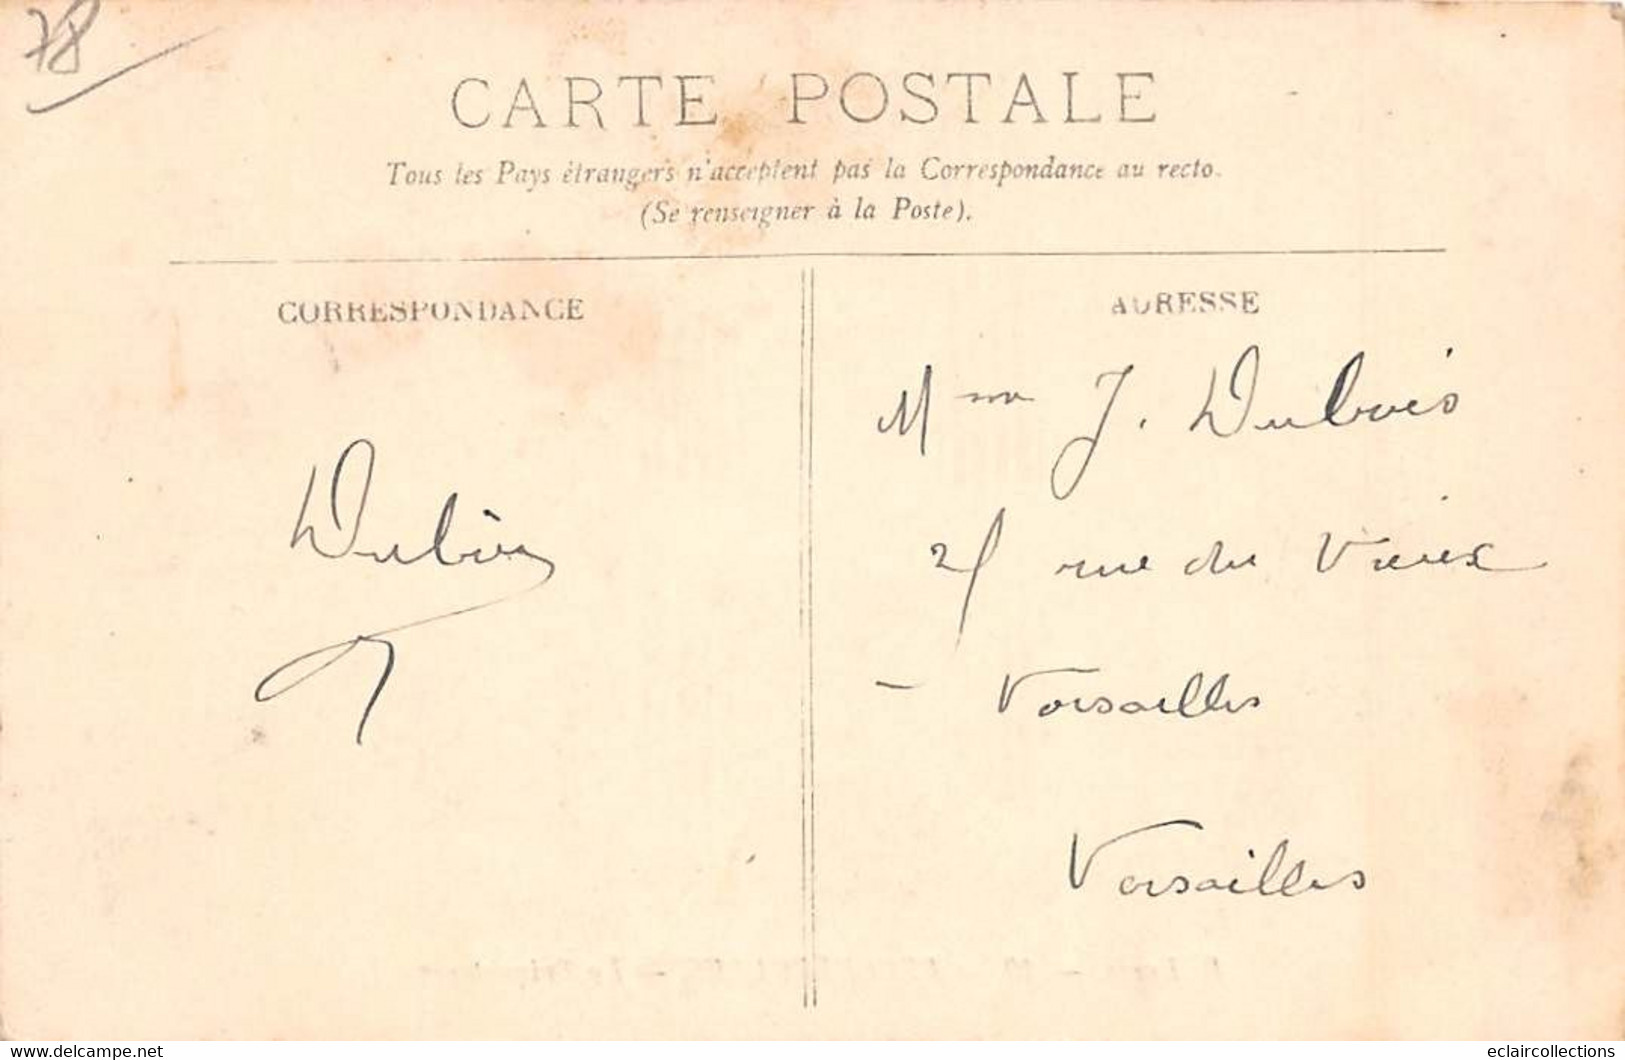 78
CARTE POSTALE
Tous les Pays étrangers n'acceptent pas la Correspondance au recto.
(Se renseigner à la Poste).
CORRESPONDANCE
ADRESSE
Mme J. Dubois
rue du Vieux
- Versailles
Versailles
Dubois
www.delcampe.net
eclaircollections